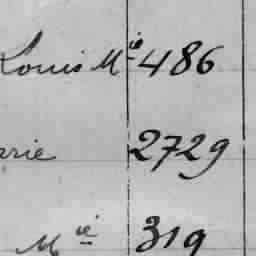 Louis Mie 486
arie 2729
Mie 319